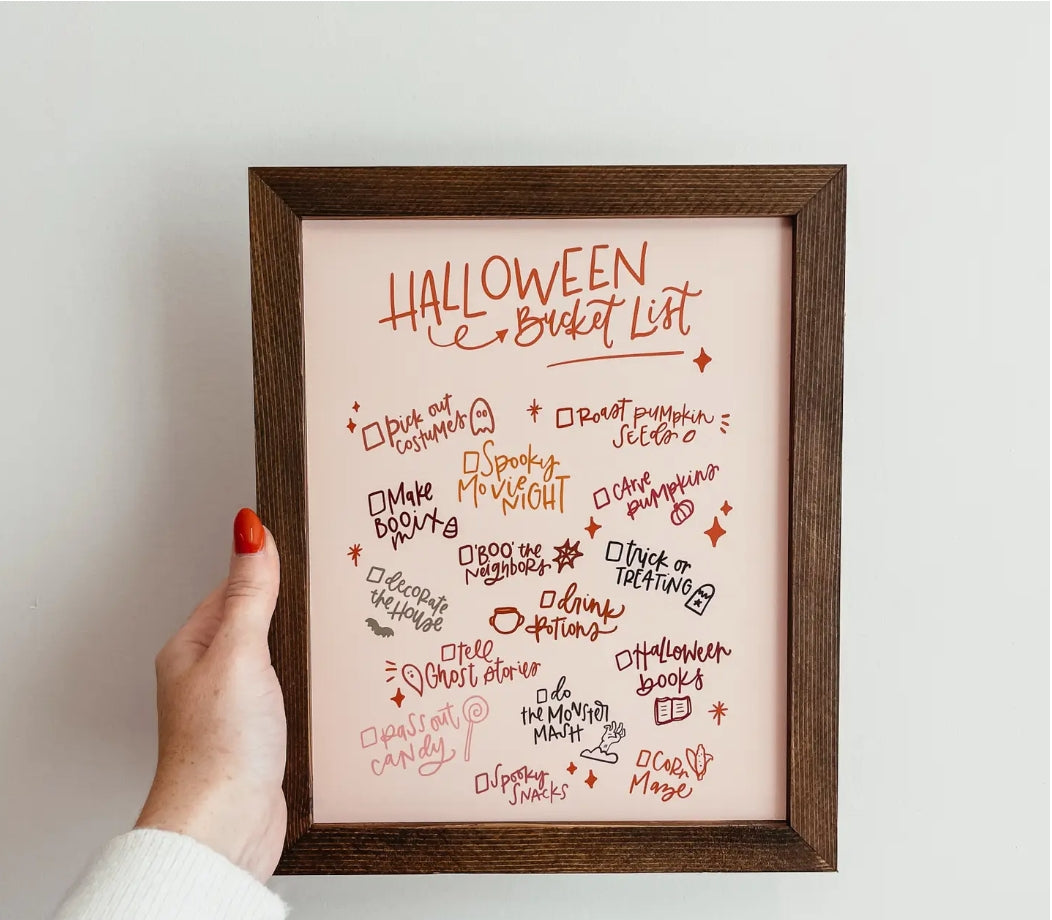 HALLOWEEN
Bucket List
pick out
costumes
Roast pumpkin
SEEDs
Spooky
Movie
NIGHT
Make
BOOix
mix
cARve
pumpkins
'BOO' the
Neighbors
trick or
TREATING
decorate
the House
drink
Potions
tell
Ghost stories
Halloween
books
pass out
candy
do
the MONSTER
MASH
Spooky
SNAcks
CoRn
Maze